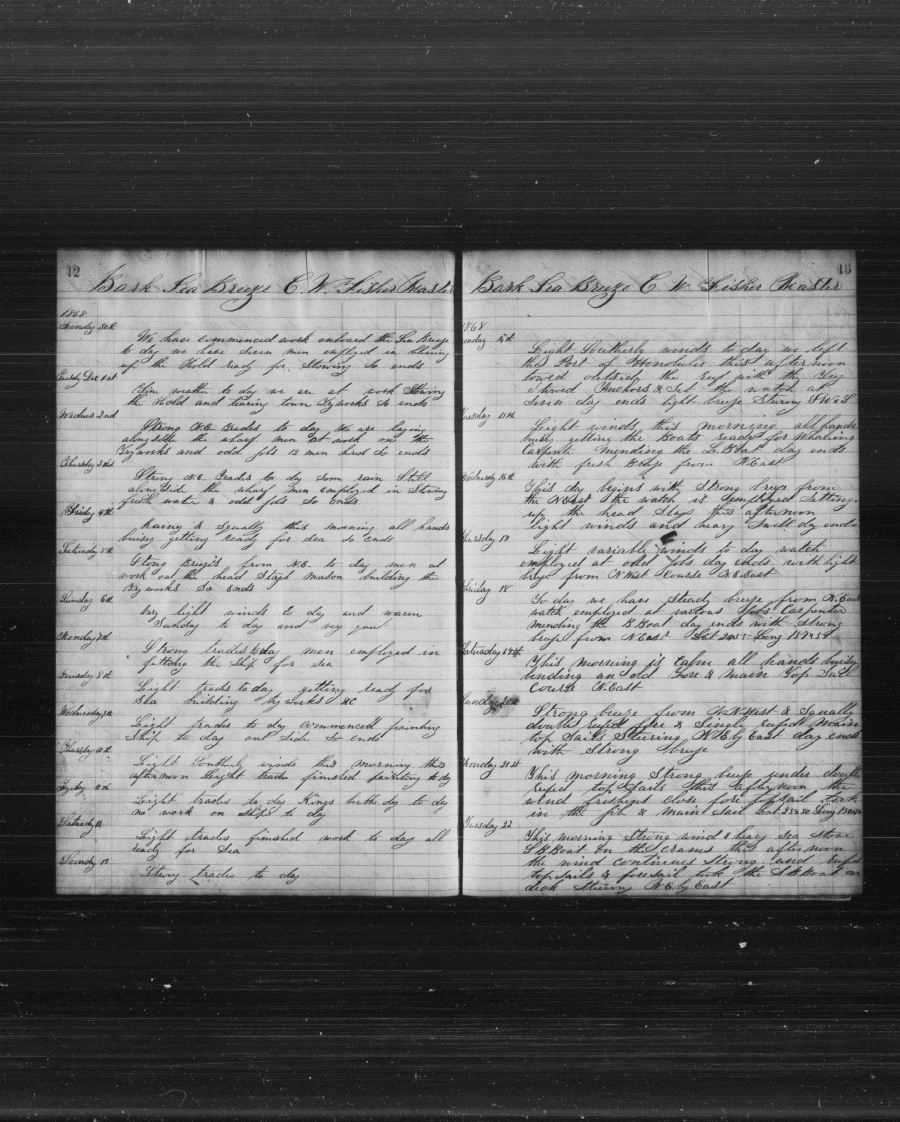 12
Bark Sea Breeze C. W. Fisher Master
1868
Monday 30th
We have commenced work onboard the Sea Breeze
to day we have seven men employed in
up the Hold ready for Stowing So ends
Tuesday Dec 1st
Fine weather to day we are at work Stowing
the Hold and tearing down tryworks So ends
Wednes 2nd
Strong N.E. Trades to day We are laying
alongside the wharf men at work on the
tryworks and odd jobs 12 men hired So ends
Thursday 3rd
Strong N.E. Trades to day some rain Still
alongside the wharf men employed in Stowing
fresh water & odd jobs So Ends
Friday 4th
Rainy & Squally this morning all hands
buisy getting ready for Sea So Ends
Saturday 5th
Stong Breezes from N.E. to day men at
work out the head Stays Mason building the
tryworks So Ends
Sunday 6th
very light winds to day and warm
Sunday to day and very quiet
Monday 7th
Strong trades to day men employed in
fitting the Ship for Sea
Tuesday 8th
Light trads to day getting ready for
Sea building tryworks &C
Wednesday 9th
Light trades to day commenced painting
Ship to day out side So ends
Thursday 10th
Light Southerly winds this morning this
afternoon Light trades finished painting to dy
Fryday 11th
Light trades to day Kings birth dy to day
no work on Ship to day
Saturday 12
Light trades finished work to day all
ready for Sea
Sunday 13
Strong trades to day
13
Bark Sea Breeze C W Fisher Master
1868
onday 14th
Light Southerly winds to day we left
the Port of Honolulu this afternoon
towed outside the Reef with the Tug
Stowed Anchors & Set the watch at
Seven day ends light breeze Steering
uesday 15th
Light winds this morning all hands
buisy getting the Boats ready for Whaling
Carpenter mending the L. Boat day ends
with fresh Breeze from N.East
Wednesday 16th
This day begins with Strong breeze from
the NEast the watch is employed Setting
up the head Stays this afternoon
light winds and heavy Swell day ends
hursday 17
Light variable winds to day watch
employed at odd jobs day ends with light
breeze from N West Course N.E East
Friday 18
To day we have Steady breeze from N.East
watch employed at various jobs Carpenter
mending the B Boat day ends with Strong
breeze from N East Lat Long
Saturaday 19th
This morning is Calm all hands buisy
bending an old Fore & Main Top Sail
Course N.East
unday 20th
Strong breeze from N.N.West & Squally
double reefed fore & Single reefed Main
top Sails Steering N.E by East day ends
with Strong breeze
Monday 21st
This morning Strong breeze under double
reefed top Sails this afternoon the
wind freshens close fore topsail took
in the jib & Main Sail Lat Long
Tuesday 22
This morning Strong wind & heavy Sea Stove
S B Boat on the cranes this afternoon
the wind continues Strong close reefed
top Sails & foresail took the S B Boat on
deck Steering N.E by East